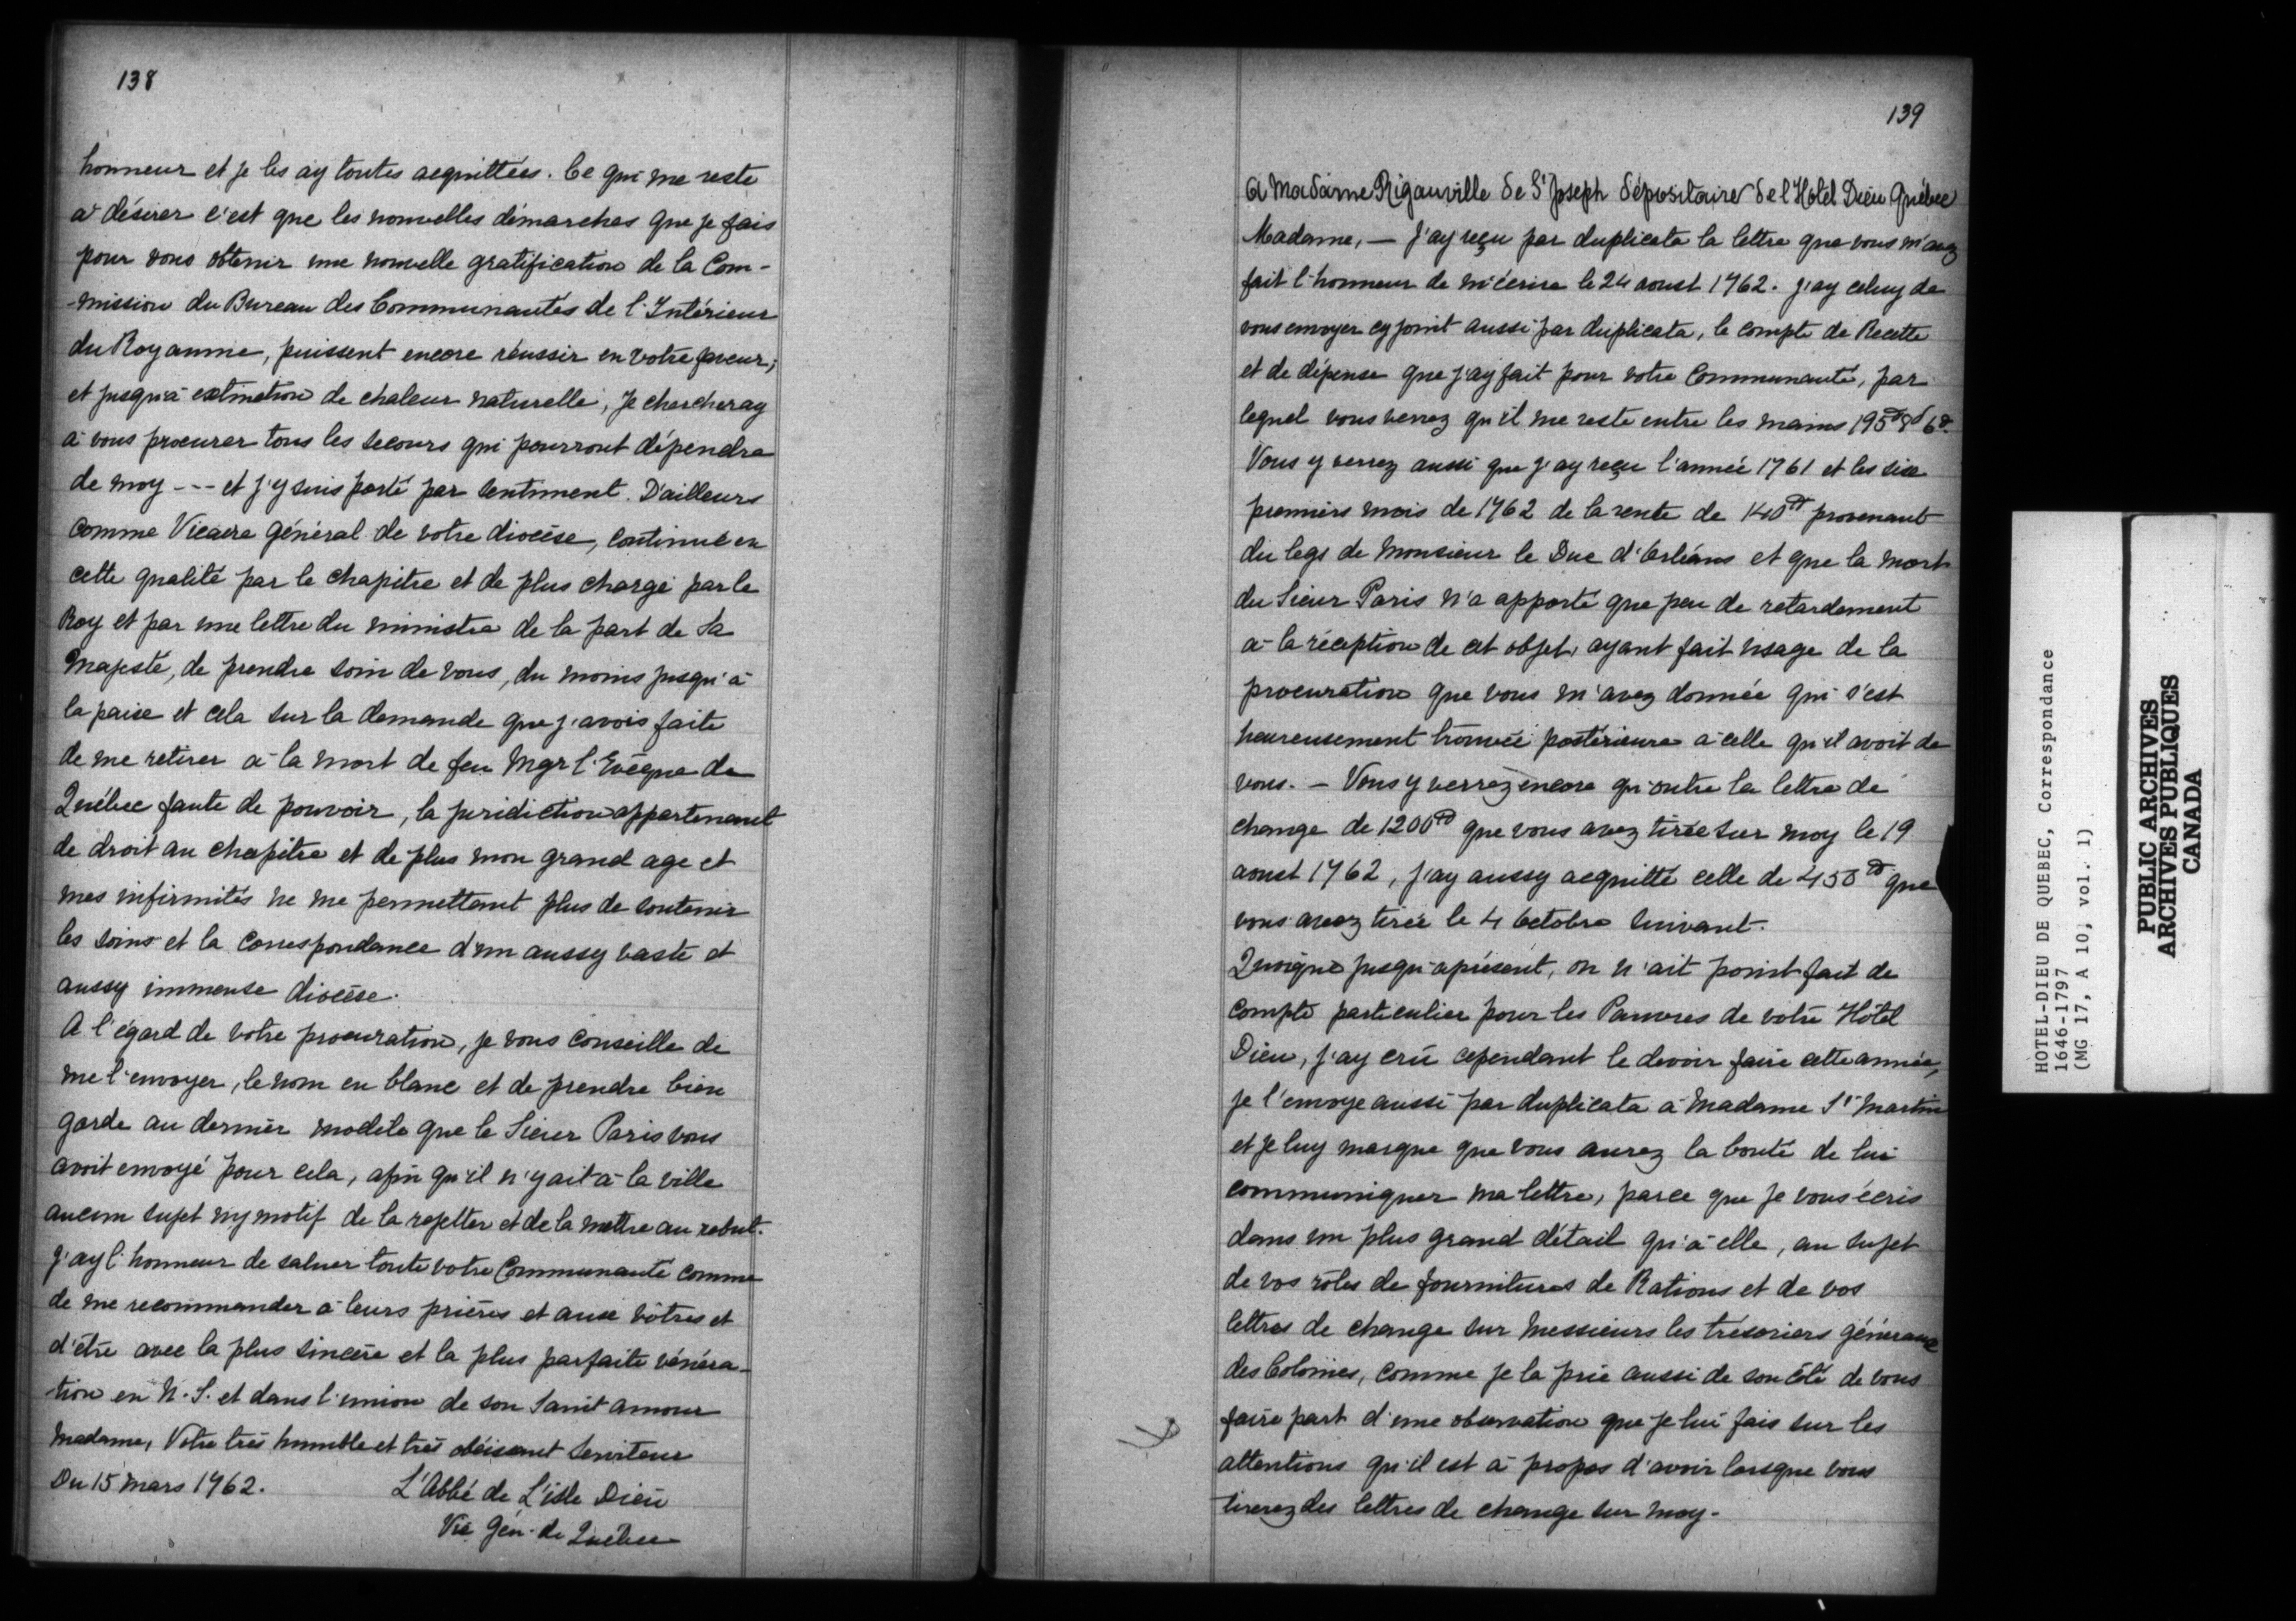 138
honneur et je les ay toutes acquittées. Ce qui me reste
à désirer c'est que les nouvelles démarches que je fais
pour vous obtenir une nouvelle gratification de la Com-
-mission du Bureau des Communautés de l'Intérieur
du Royaume, puissent encore réussir en votre faveur;
et jusqu'à extinction de chaleur naturelle, je chercheray
à vous procurer tous les secours qui pourront dépendre
de moy --- et j'y suis porté par sentiment. D'ailleurs
comme Vicaire général de votre diocèse, continué en
cette qualité par le chapitre et de plus chargé par le
Roy et par une lettre du ministre de la part de Sa
Majesté, de prendre soin de vous, du moins jusqu'à
la paix et cela sur la demande que j'avois faite
de me retirer à la mort de feu Mgr l'Evêque de
Québec faute de pouvoir, la juridiction appartenant
de droit au chapitre et de plus mon grand age et
mes infirmités ne me permettant plus de soutenir
les soins et la correspondance d'un aussy vaste et
aussy immense diocèse.
A l'égard de votre procuration, je vous conseille de
me l'envoyer, le nom en blanc et de prendre bien
garde au dernier modèle que le Sieur Paris vous
avoit envoyé pour cela, afin qu'il n'y ait à la ville
aucun sujet ny motif de la rejetter et de la mettre au rebut.
J'ay l'honneur de saluer toute votre Communauté comme
de me recommander à leurs prières et aux vôtres et
d'être avec la plus sincère et la plus parfaite vénéra-
-tion en N. S. et dans l'union de son Saint amour
Madame, Votre très humble et très obéissant Serviteur
Du 15 Mars 1762. L'Abbé de L'isle Dieu
Vic Gén. de Québec
139
A Madame Rigauville de St Joseph dépositaire de l'Hotel Dieu Québec
Madame, — J'ay reçu par duplicata la lettre que vous m'avez
fait l'honneur de m'écrire le 24 aoust 1762. J'ay celuy de
vous envoyer cy joint aussi par duplicata, le compte de Recette
et de dépense que j'ay fait pour votre Communauté, par
lequel vous verrez qu'il me reste entre les mains 195# 8s 6d.
Vous y verrez aussi que j'ay reçu l'année 1761 et les six
premiers mois de 1762 de la rente de 140# provenant
du legs de Monsieur le Duc d'Orléans et que la mort
du Sieur Paris n'a apporté que peu de retardement
à la réception de cet objet, ayant fait usage de la
procuration que vous m'avez donnée qui s'est
heureusement trouvée postérieure à celle qu'il avoit de
vous. — Vous y verrez encore qu'outre la lettre de
change de 1200# que vous avez tirée sur moy le 19
aoust 1762, j'ay aussy acquitté celle de 450# que
vous avez tirée le 4 Octobre suivant.
Quoique jusqu'aprésent, on n'ait point fait de
compte particulier pour les Pauvres de votre Hôtel
Dieu, j'ay crû cependant le devoir faire cette année,
je l'envoye aussi par duplicata à Madame St Martin
et je luy marque que vous aurez la bonté de lui
communiquer ma lettre, parce que je vous écris
dans un plus grand détail qu'à elle, au sujet
de vos rôles de fournitures de Rations et de vos
lettres de change sur Messieurs les trésoriers généraux
des Colonies, comme je la prie aussi de son côté de vous
faire part d'une observation que je lui fais sur les
attentions qu'il est à propos d'avoir lorsque vous
tirerez des lettres de change sur moy.
HOTEL-DIEU DE QUEBEC, Correspondance
1646-1797
(MG 17, A 10, vol. 1)
PUBLIC ARCHIVES
ARCHIVES PUBLIQUES
CANADA